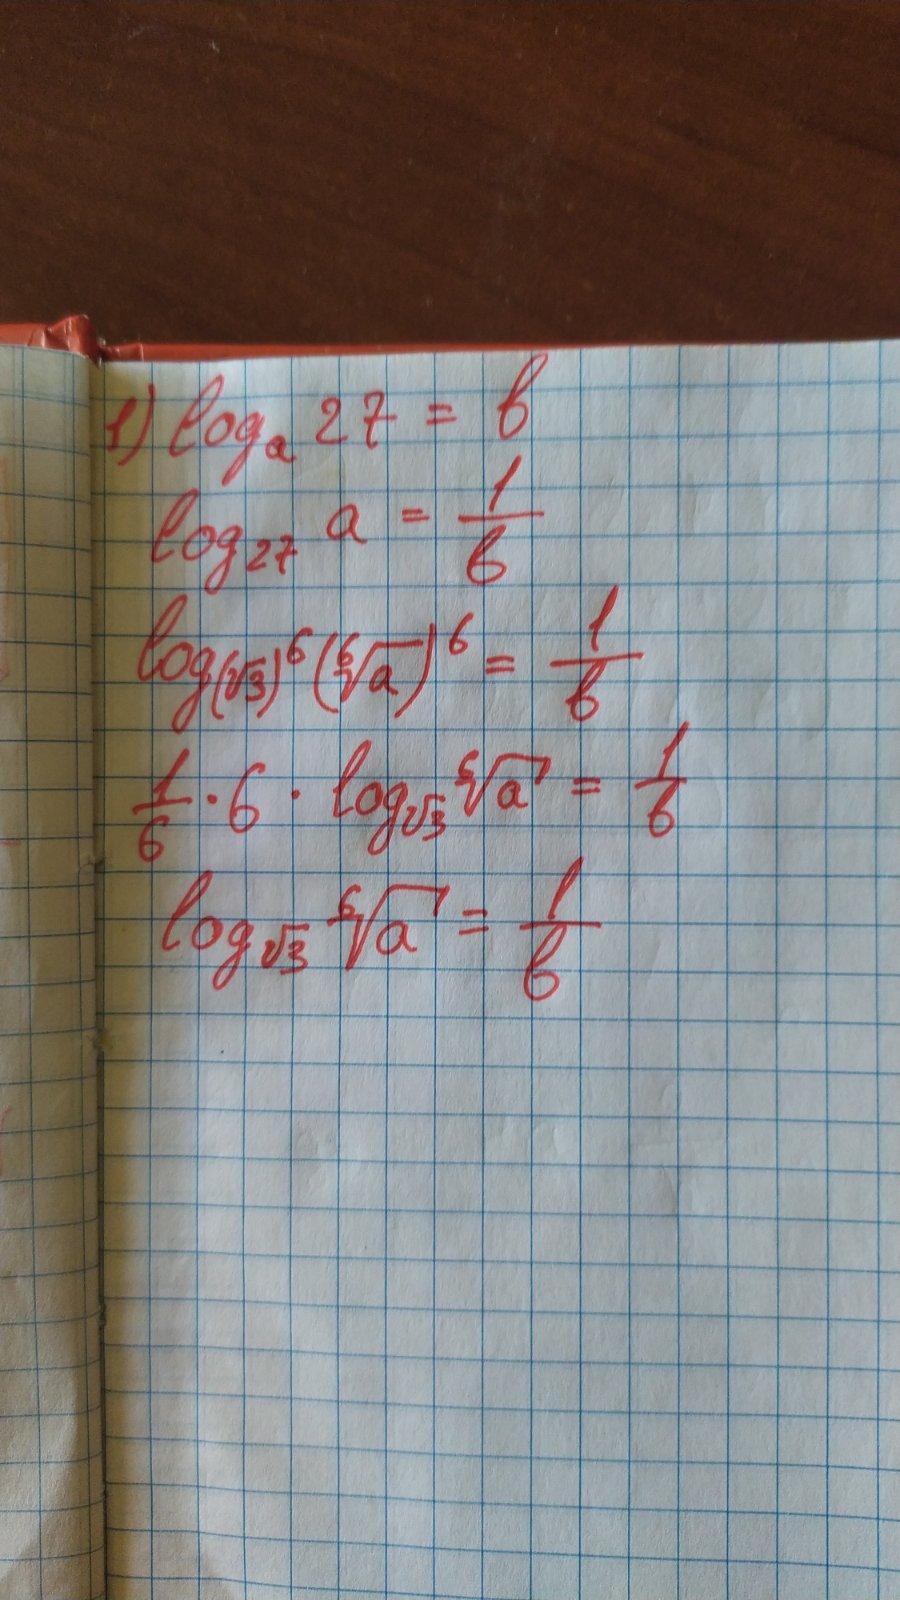 1) logₐ 27 = b
log₂₇ a = 1/b
log_(√3)⁶ (⁶√a)⁶ = 1/b
1/6 · 6 · log_√3 ⁶√a = 1/b
log_√3 ⁶√a = 1/b